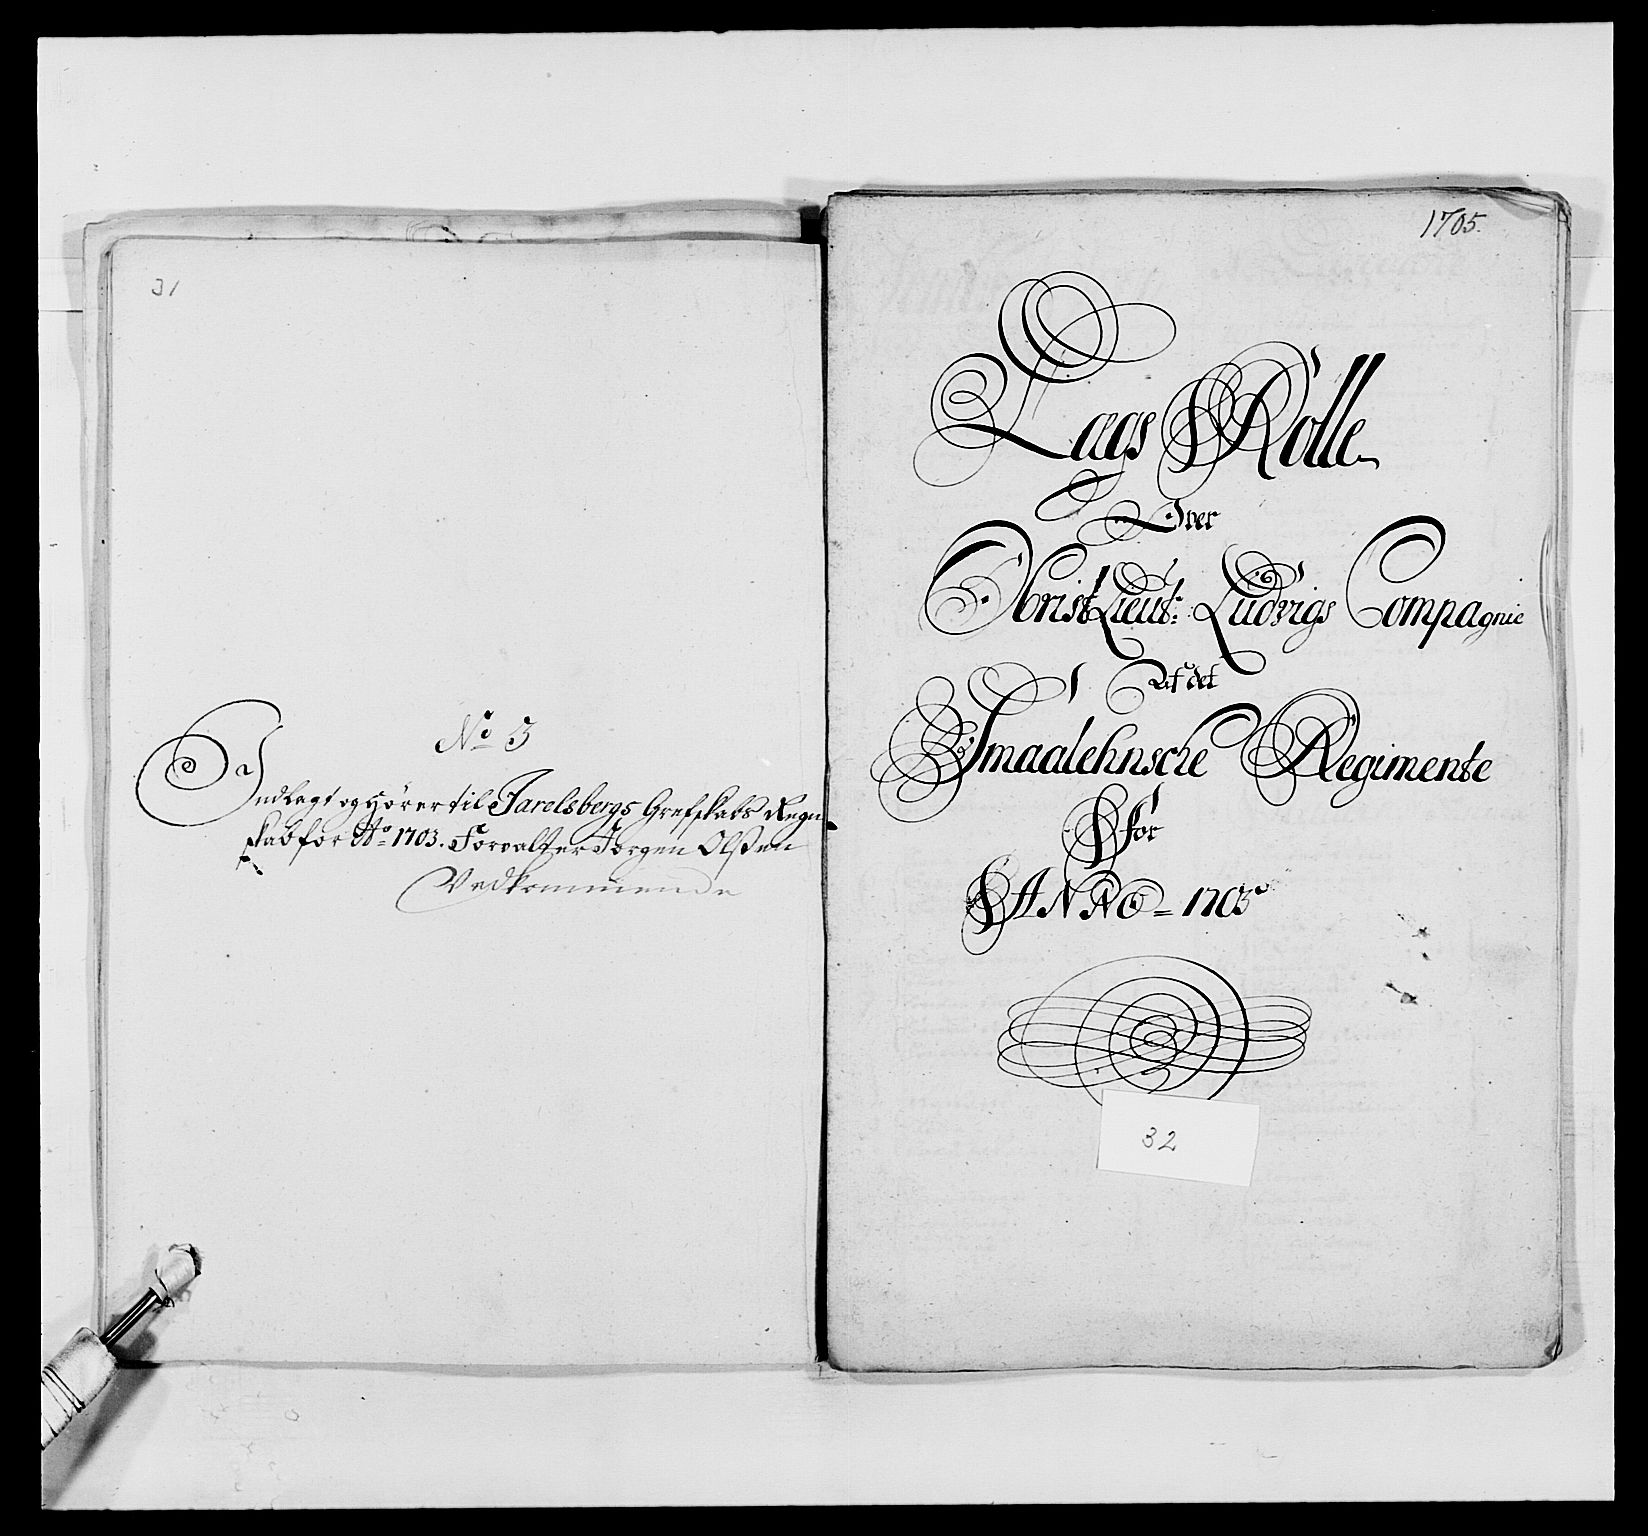 31
No 3
Indlagt og Hörer til Jarelsbergs Grefskabs Regn
skab for Ao 1703. Forvalter Jörgen Olssen
Vedkommende
1705.
Laegs Rolle
Over
Obrist Lieut: Ludvigs Compagnie
Af det
Smaalehnsche Regimente
For
ANNO = 1703
32